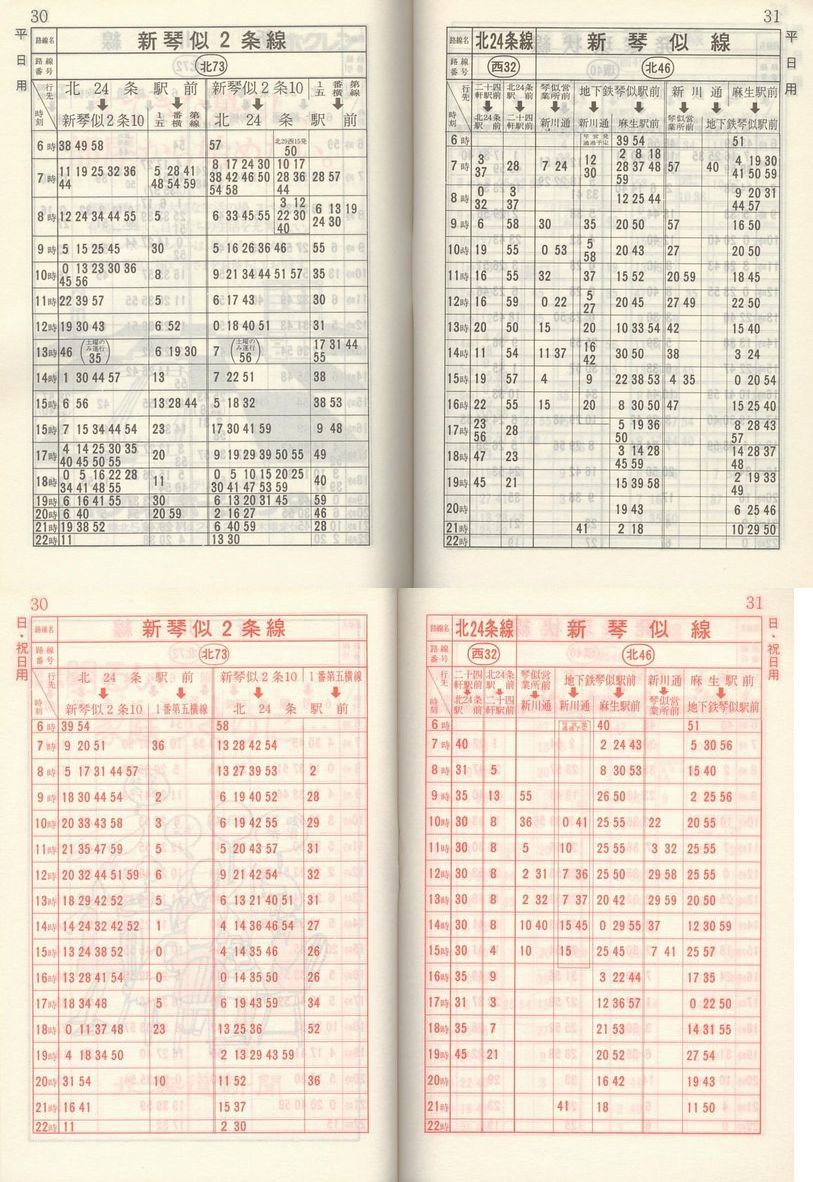 30
平日用
路線名 新琴似2条線
路線番号 北73
行先 時刻
北24条駅前 新琴似2条10 1番第五横線
新琴似2条10 1番第五横線 北24条駅前
6時 38 49 58 57 北29西15発 50
7時 11 19 25 32 36 44 5 28 41 48 54 59 8 17 24 30 38 42 46 50 54 58 10 17 28 36 44 28 57
8時 12 24 34 44 55 5 6 33 45 55 3 12 22 30 40 6 13 19 24 30
9時 5 15 25 45 30 5 16 26 36 46 55
10時 0 13 23 30 36 45 56 8 9 21 34 44 51 57 35
11時 22 39 57 5 6 17 43 30
12時 19 30 43 6 52 0 18 40 51 31
13時 46 (土曜のみ運行 35) 6 19 30 7 (土曜のみ運行 56) 17 31 44 55
14時 1 30 44 57 13 7 22 51 38
15時 6 56 13 28 44 5 18 32 38 53
15時 7 15 34 44 54 23 17 30 41 59 9 48
17時 4 14 25 30 35 40 45 50 55 20 9 19 29 39 50 55 49
18時 0 5 16 22 28 34 41 48 55 11 0 5 10 15 20 25 30 41 47 53 59 40
19時 6 16 41 55 30 6 13 20 31 45 59
20時 6 40 20 59 2 16 27 46
21時 19 38 52 6 40 59 28
22時 11 13 30
31
平日用
路線名 北24条線 新琴似線
路線番号 西32 北46
行先 時刻
二十四軒駅前 北24条駅前 琴似営業所前 地下鉄琴似駅前 新川通 麻生駅前
北24条駅前 二十四軒駅前 新川通 新川通 麻生駅前 琴似営業所前 地下鉄琴似駅前
6時 39 54 51
7時 3 37 28 7 24 12 30 2 8 18 28 37 48 59 57 40 4 19 30 41 50 59
8時 0 32 3 37 12 25 44 9 20 31 44 57
9時 6 58 30 35 20 50 57 16 50
10時 19 55 0 53 5 58 20 43 27 20 50
11時 16 55 32 37 15 52 20 59 18 45
12時 16 59 0 22 5 27 20 45 27 49 22 50
13時 20 50 15 20 10 33 54 42 15 40
14時 11 54 11 37 16 42 30 50 38 3 24
15時 19 57 4 9 22 38 53 4 35 0 20 54
16時 22 55 15 20 8 30 50 47 15 25 40
17時 23 56 28 5 19 36 50 8 28 43 57
18時 47 23 3 14 28 45 59 14 28 37 48
19時 45 21 15 39 58 2 19 33 49
20時 19 43 6 25 46
21時 41 2 18 10 29 50
22時
30
日・祝日用
路線名 新琴似2条線
路線番号 北73
行先 時刻
北24条駅前 新琴似2条10 1番第五横線
新琴似2条10 1番第五横線 北24条駅前
6時 39 54 58
7時 9 20 51 36 13 28 42 54
8時 5 17 31 44 57 13 27 39 53 2
9時 18 30 44 54 2 6 19 40 52 28
10時 20 33 43 58 3 6 19 42 55 29
11時 21 35 47 59 5 5 20 43 57 31
12時 20 32 44 51 59 6 9 21 42 54 32
13時 18 29 42 52 5 6 13 21 40 51 31
14時 14 24 32 42 52 1 4 14 36 46 54 27
15時 13 24 38 52 0 4 14 35 46 26
16時 13 28 41 54 0 0 14 35 50 26
17時 18 34 48 5 6 19 43 59 34
18時 0 11 37 48 23 13 25 36 52
19時 4 18 34 50 2 13 29 43 59
20時 31 54 10 11 52 36
21時 16 41 15 37
22時 11 2 30
31
日・祝日用
路線名 北24条線 新琴似線
路線番号 西32 北46
行先 時刻
二十四軒駅前 北24条駅前 琴似営業所前 地下鉄琴似駅前 新川通 麻生駅前
北24条駅前 二十四軒駅前 新川通 新川通 麻生駅前 琴似営業所前 地下鉄琴似駅前
6時 40 51
7時 40 2 24 43 5 30 56
8時 31 5 8 30 53 15 40
9時 35 13 55 26 50 2 25 56
10時 30 8 36 0 41 25 55 22 20 55
11時 30 8 5 10 25 55 3 32 25 55
12時 30 8 2 31 7 36 25 50 29 58 25 55
13時 30 8 2 32 7 37 20 42 29 59 20 50
14時 30 8 10 40 15 45 0 29 55 37 12 30 59
15時 30 4 10 15 25 45 7 41 25 57
16時 35 9 3 22 44 17 35
17時 31 3 12 36 57 0 22 50
18時 35 7 21 53 14 31 55
19時 45 21 20 52 27 54
20時 16 42 19 43
21時 41 18 11 50
22時